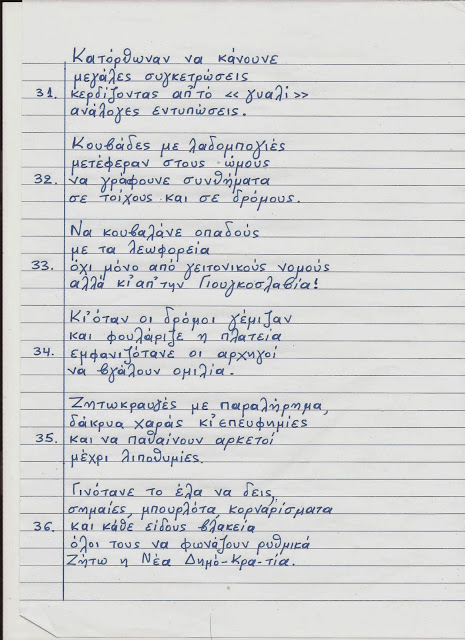 Κατόρθωναν να κάνουνε
μεγάλες συγκετρώσεις
31. κερδίζοντας απ' τό << γυαλί >>
ανάλογες εντυπώσεις.
Κουβάδες με λαδομπογιές
μετέφεραν στους ώμους
32. να γράφουνε συνθήματα
σε τοίχους και σε δρόμους.
Να κουβαλάνε οπαδούς
με τα λεωφορεία
33. όχι μόνο από γειτονικούς νομούς
αλλά κι' απ' την Γιουγκοσλαβία!
Κι' όταν οι δρόμοι γέμιζαν
και φουλάριζε η πλατεία
34. εμφανιζότανε οι αρχηγοί
να βγάλουν ομιλία.
Ζητωκραυγές με παραλήρημα,
δάκρυα χαράς κι' επευφημίες
35. και να παθαίνουν αρκετοί
μέχρι λιποθυμίες.
Γινότανε το έλα να δεις,
σημαίες, μπουρλότα, κορναρίσματα
36. και κάθε είδους βλακεία
όλοι τους να φωνάζουν ρυθμικά
Ζήτω η Νέα Δημό-Κρα-τία.